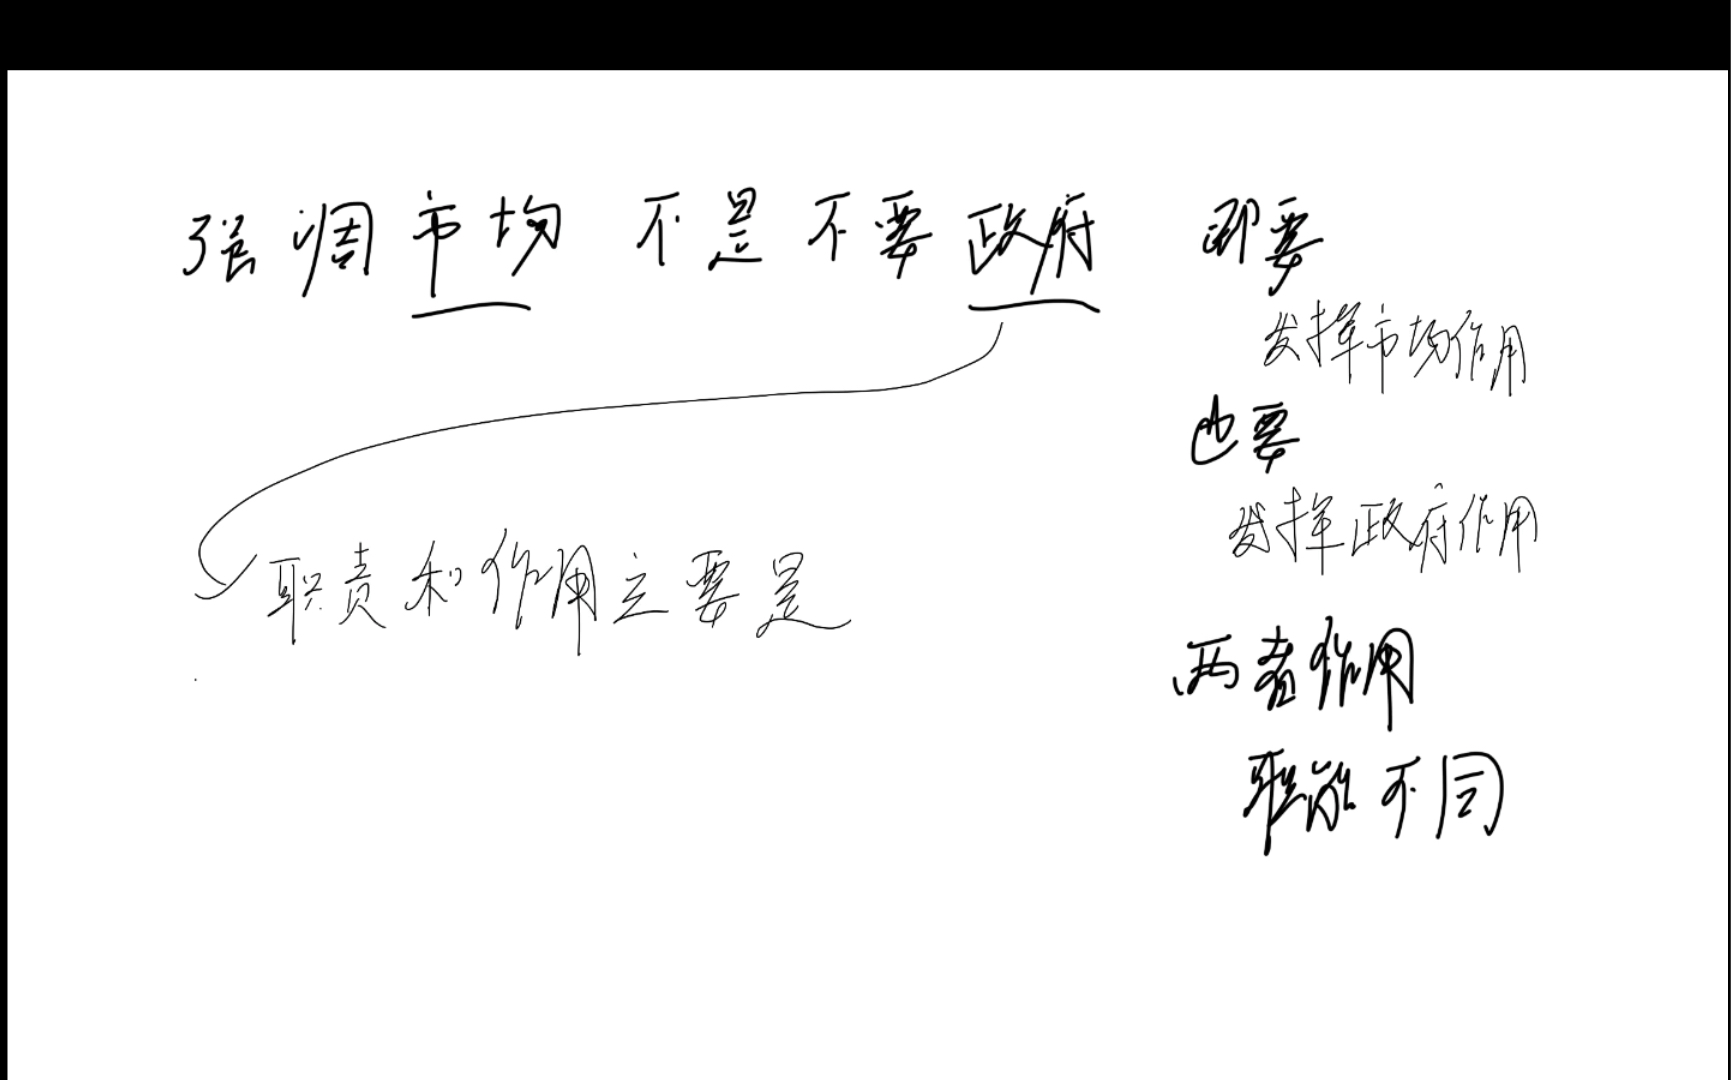 强调市场 不是不要政府 即要
发挥市场作用
也要
发挥政府作用
职责和作用主要是
两者作用
职能不同